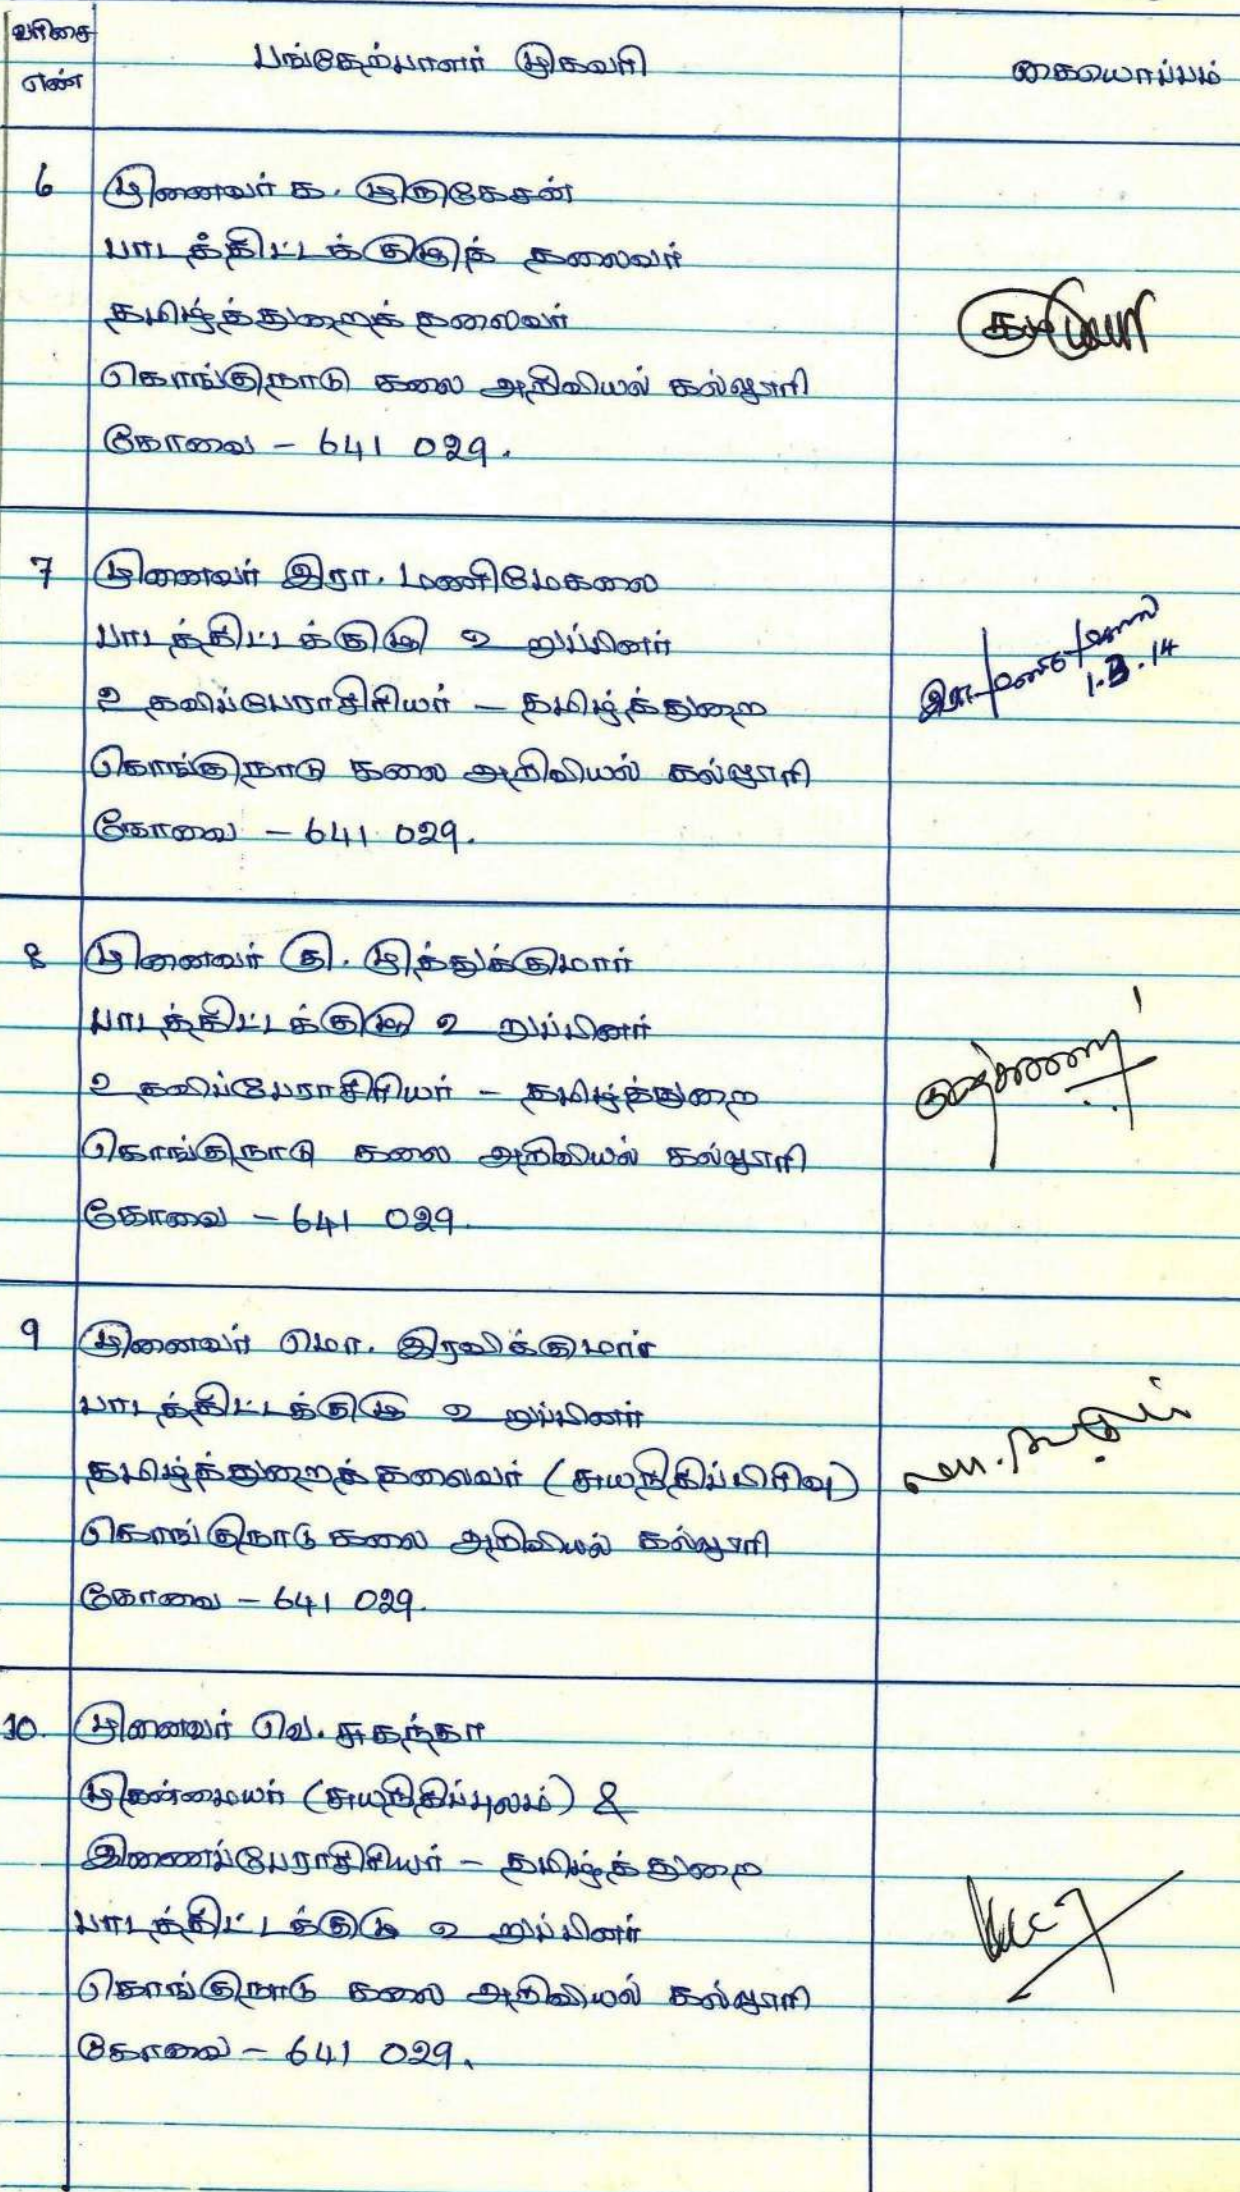 வரிசை
எண்
பங்கேற்பாளர் முகவரி
கையொப்பம்
6 முனைவர் க. முருகேசன்
பாடத்திட்டக்குழுத் தலைவர்
தமிழ்த்துறைத் தலைவர்
கொங்குநாடு கலை அறிவியல் கல்லூரி
கோவை - 641 029.
7 முனைவர் இரா. மணிமேகலை
பாடத்திட்டக்குழு உறுப்பினர்
உதவிப்பேராசிரியர் - தமிழ்த்துறை
1.3.14
கொங்குநாடு கலை அறிவியல் கல்லூரி
கோவை - 641 029.
8 முனைவர் கு. முத்துக்குமார்
பாடத்திட்டக்குழு உறுப்பினர்
உதவிப்பேராசிரியர் - தமிழ்த்துறை
கொங்குநாடு கலை அறிவியல் கல்லூரி
கோவை - 641 029.
9 முனைவர் மொ. இரவிக்குமார்
பாடத்திட்டக்குழு உறுப்பினர்
தமிழ்த்துறைத்தலைவர் (சுயநிதிப்பிரிவு)
கொங்குநாடு கலை அறிவியல் கல்லூரி
கோவை - 641 029.
10. முனைவர் வெ. சுகந்தா
முதன்மையர் (சுயநிதிப்புலம்) &
இணைப்பேராசிரியர் - தமிழ்த்துறை
பாடத்திட்டக்குழு உறுப்பினர்
கொங்குநாடு கலை அறிவியல் கல்லூரி
கோவை - 641 029.